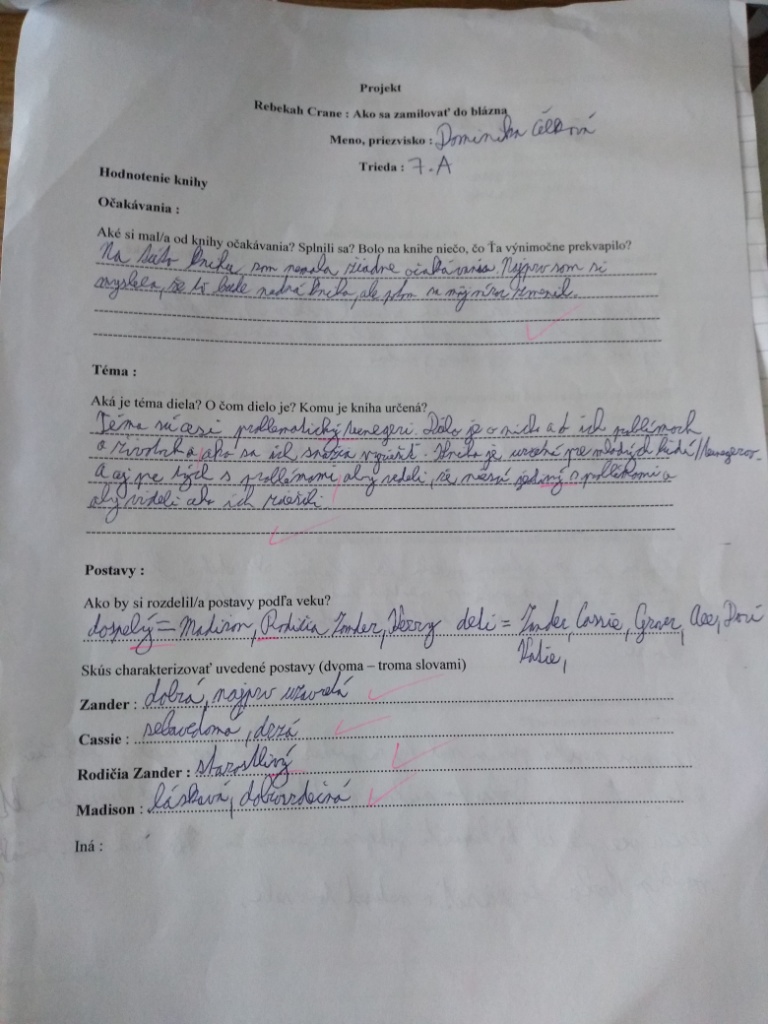 Projekt
Rebekah Crane : Ako sa zamilovať do blázna
Meno, priezvisko : Dominika
Trieda : 7.A
Hodnotenie knihy
Očakávania :
Aké si mal/a od knihy očakávania? Splnili sa? Bolo na knihe niečo, čo Ťa výnimočne prekvapilo?
Na túto knihu som nemala žiadne očakávania. Najprv som si
myslela, že to bude nudná kniha, ale potom sa môj názor zmenil.
Téma :
Aká je téma diela? O čom dielo je? Komu je kniha určená?
Téma sú asi problematický teenegeri. Dielo je o nich a o ich problémoch
o životoch a ako sa ich snažia vyriešiť. Kniha je určená pre mladých ľudí/teenegerov
a aj pre tých s problémami, aby vedeli, že niesú jediný s problémami a
aby vedeli ako ich riešiť.
Postavy :
Ako by si rozdelil/a postavy podľa veku?
dospelý = Madison, Rodičia Zander, Kerry deti = Zander, Cassie, Grover, Dori
Katie,
Skús charakterizovať uvedené postavy (dvoma – troma slovami)
Zander : dobrá, najprv uzavretá
Cassie : sebavedomá, drzá
Rodičia Zander : starostlivý
Madison : láskavá, dobrosrdečná
Iná :